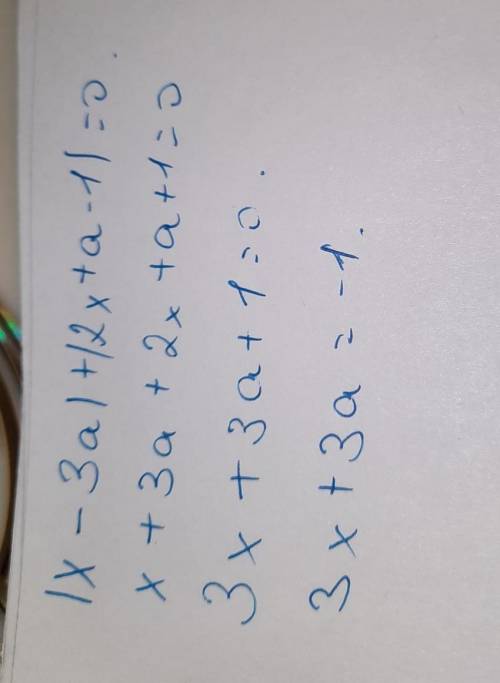 |x - 3a| + |2x + a - 1| = 0.
x + 3a + 2x + a + 1 = 0
3x + 3a + 1 = 0.
3x + 3a = -1.